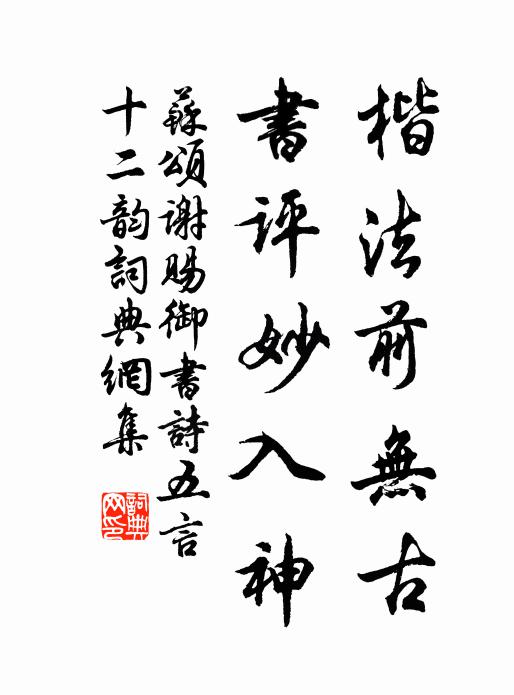 楷法前無古
書評妙入神
蘇頌謝賜御書詩五言
十二韵詞典網集
詞典网印